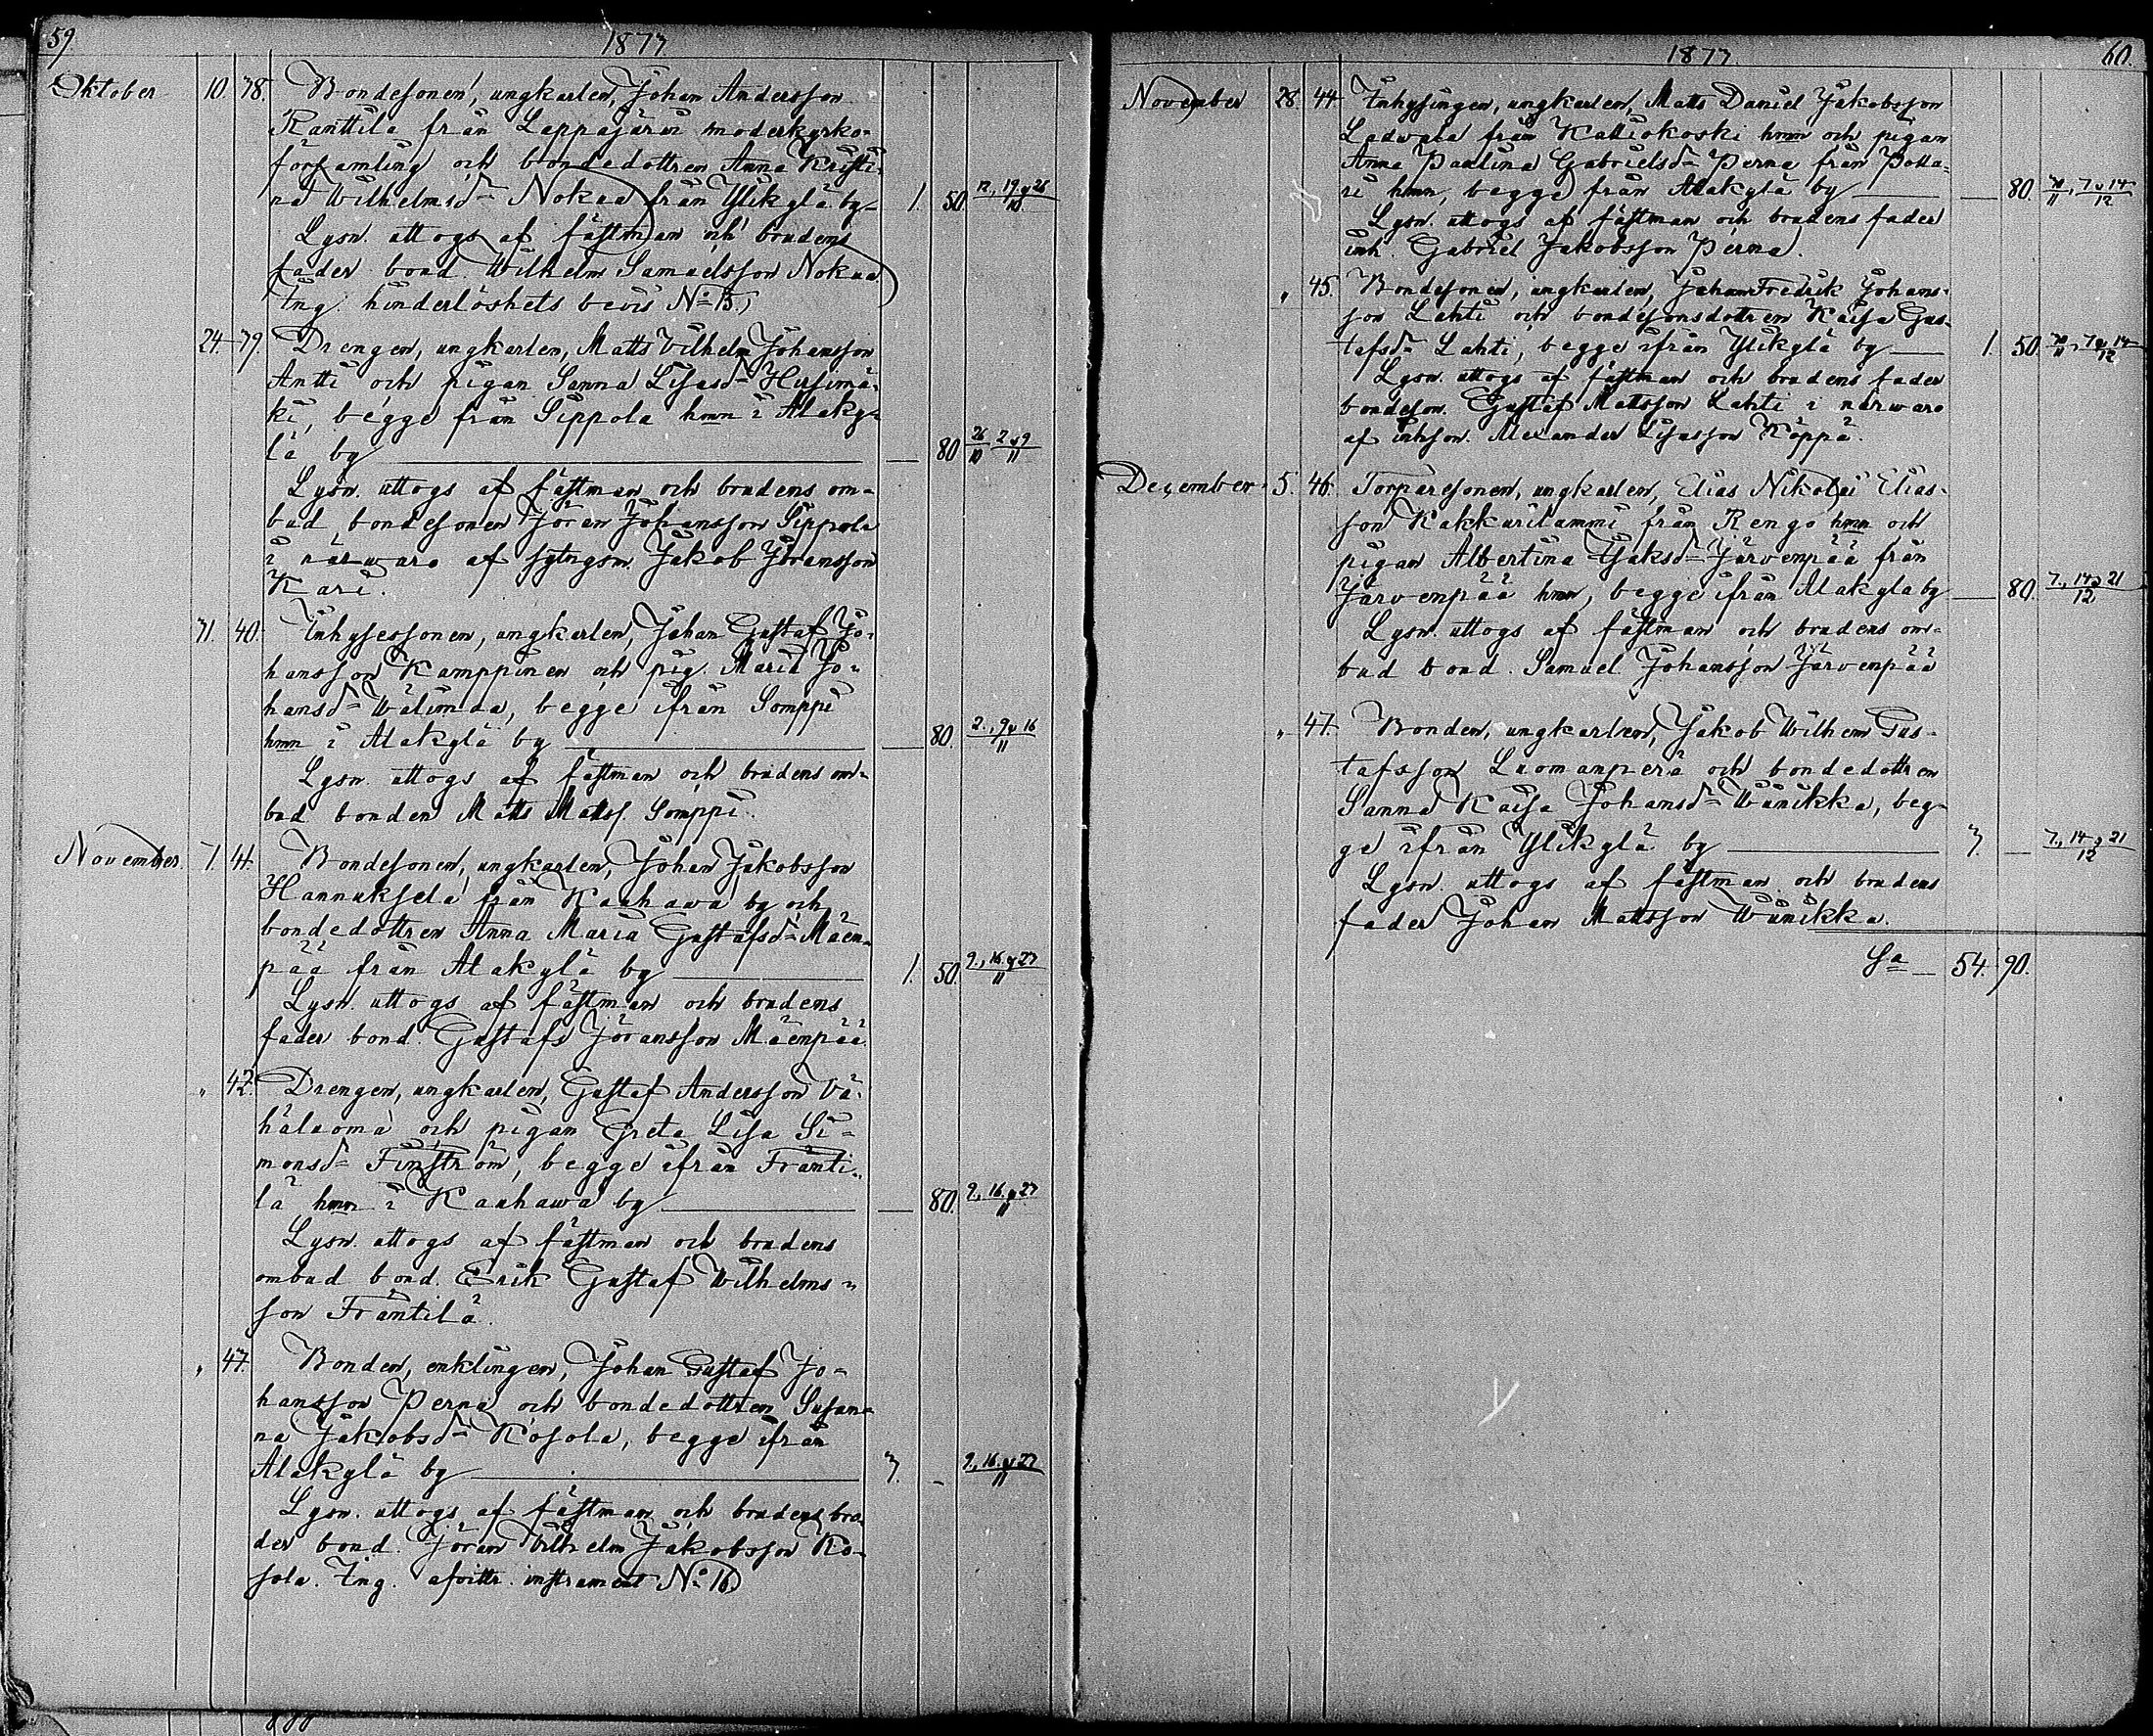 59. 1873
Oktober 10. 38. Bondesonen, ungkarlen, Johan Andersson
Ranttila från Lappajärvi moderkyrko-
församling och bondedottren Anna Kristi-
na Wilhelmsdr Nokua från Ylikylä by — 1. 50. 12., 19 o 26/10
Lysn. uttogs af fästman och brudens
fader bond. Wilhelm Samuelsson Nokua
Ing. hinderlöshets bevis No 15.
24. 39. Drengen, ungkarlen, Matts Vilhelm Johansson
Antti och pigan Sanna Lisasdr Hirsimä-
ki, begge från Sippola hmn i Alaky-
lä by — 80 26/10 2 o 9/11
Lysn. uttogs af fästman och brudens om-
bud bondesonen Jöran Johansson Sippola
i närwaro af sytngsm. Jakob Jöransson
Kari.
31. 40. Inhysessonen, ungkarlen, Johan Gustaf Jo-
hansson Kamppinen och pig. Maria Jo-
hansdr Wälimaa, begge ifrån Somppi
hmn i Alakylä by — 80. 2., 9 o 16/11
Lysn. uttogs af fästman och brudens om-
bud bonden Matts Matts. Somppi.
November. 7. 41. Bondesonen, ungkarlen, Johan Jakobsson
Hannuksela från Kauhawa by och
bondedottren Anna Maria Gustafsdr Mäen-
pää från Alakylä by — 1. 50. 9., 16. o 23/11
Lysn. uttogs af fästman och brudens
fader bond. Gustafs Jöransson Mäenpää.
" 42. Drengen, ungkarlen, Gustaf Andersson Vä-
häluoma och pigan Greta Lisa Si-
monsdr Finström, begge ifrån Fränti-
lä hmn i Kauhawa by — 80. 9., 16. o 23/11
Lysn. uttogs af fästman och brudens
ombud bond. Erik Gustaf Wilhelms-
son Fräntilä.
" 43. Bonden, enklingen, Johan Gustaf Jo-
hansson Perna och bondedottren Susan-
na Jakobsdr Kosola, begge ifrån
Alakylä by — 3. — 9., 16. o 23/11
Lysn. uttogs af fästman och brudens bro-
der bond. Jöran Vilhelm Jakobsson Ko-
sola. Ing. afvittr. instrument No 16
1873. 60.
November 28. 44. Inhysingen, ungkarlen, Matts Daniel Jakobsson
Ladwala från Kattiokoski hmn och pigan
Anna Paulina Gabrielsdr Perna från Potta-
ri hmn, begge från Alakylä by — 80. 30/11, 7 o 14/12
Lysn. uttogs af fästman och brudens fader
inh. Gabriel Jakobsson Perna.
" 45. Bondesonen, ungkarlen, Johan Fredrik Johans-
son Lahti och bondesonsdottren Kaisa Gus-
tafsdr Lahti, begge ifrån Ylikylä by — 1. 50. 30/11, 7 o 14/12
Lysn. uttogs af fästman och brudens fader
bondeson. Gustaf Mattsson Lahti i närwaro
af inhson. Alexander Lisasson Köppä.
December 5. 46. Torparesonen, ungkarlen, Elias Nikolai Elias-
son Kakkurilammi från Rengo hmn och
pigan Albertina Isaksdr Järvenpää från
Järvenpää hmn, begge ifrån Alakylä by — 80. 7., 14 o 21/12
Lysn. uttogs af fästman och brudens om-
bud bond. Samuel Johansson Järvenpää
" 47. Bonden, ungkarlen, Jakob Wilhem Gus-
tafsson Luomanperä och bondedottren
Sanna Kaisa Johansdr Wunikka, beg-
ge ifrån Ylikylä by — 3. — 7., 14 o 21/12
Lysn. uttogs af fästman och brudens
fader Johan Mattsson Wunikka.
Sa — 54. 90.